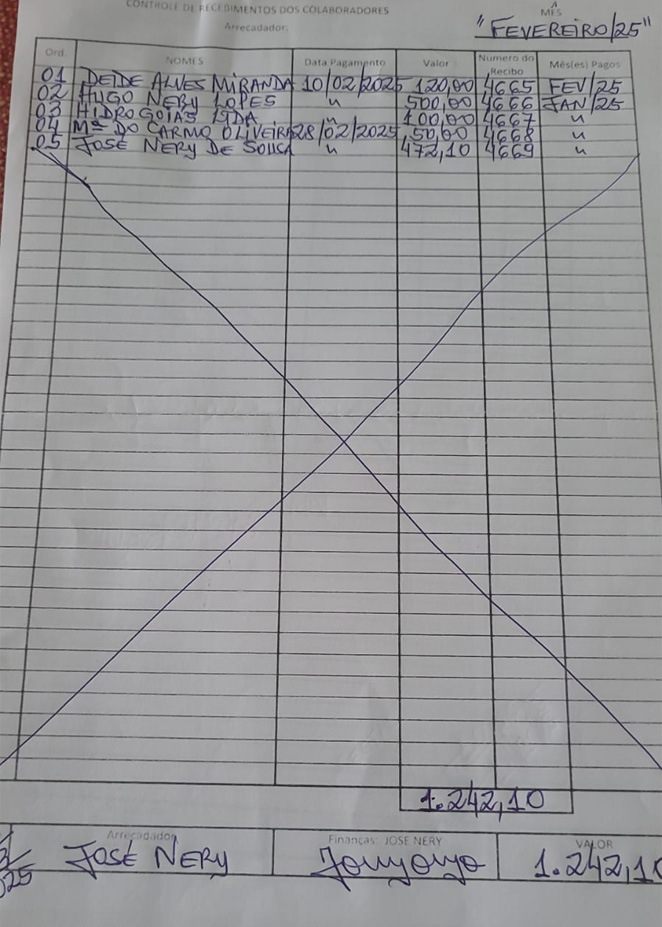 CONTROLE DE RECEBIMENTOS DOS COLABORADORES
MÊS
Arrecadador:
"FEVEREIRO/25"
Ord. NOMES Data Pagamento Valor Numero do Recibo Mês(es) Pagos
01 DEIDE ALVES MIRANDA 10/02/2025 120,00 4665 FEV/25
02 HUGO NERY LOPES " 500,00 4666 JAN/25
03 HIDROGOIÁS LTDA " 100,00 4667 "
04 Mª DO CARMO OLIVEIRA 28/02/2025 50,00 4668 "
05 JOSÉ NERY DE SOUSA " 472,10 4669 "
1.242,10
Arrecadador Finanças: JOSE NERY VALOR
JOSÉ NERY 1.242,10